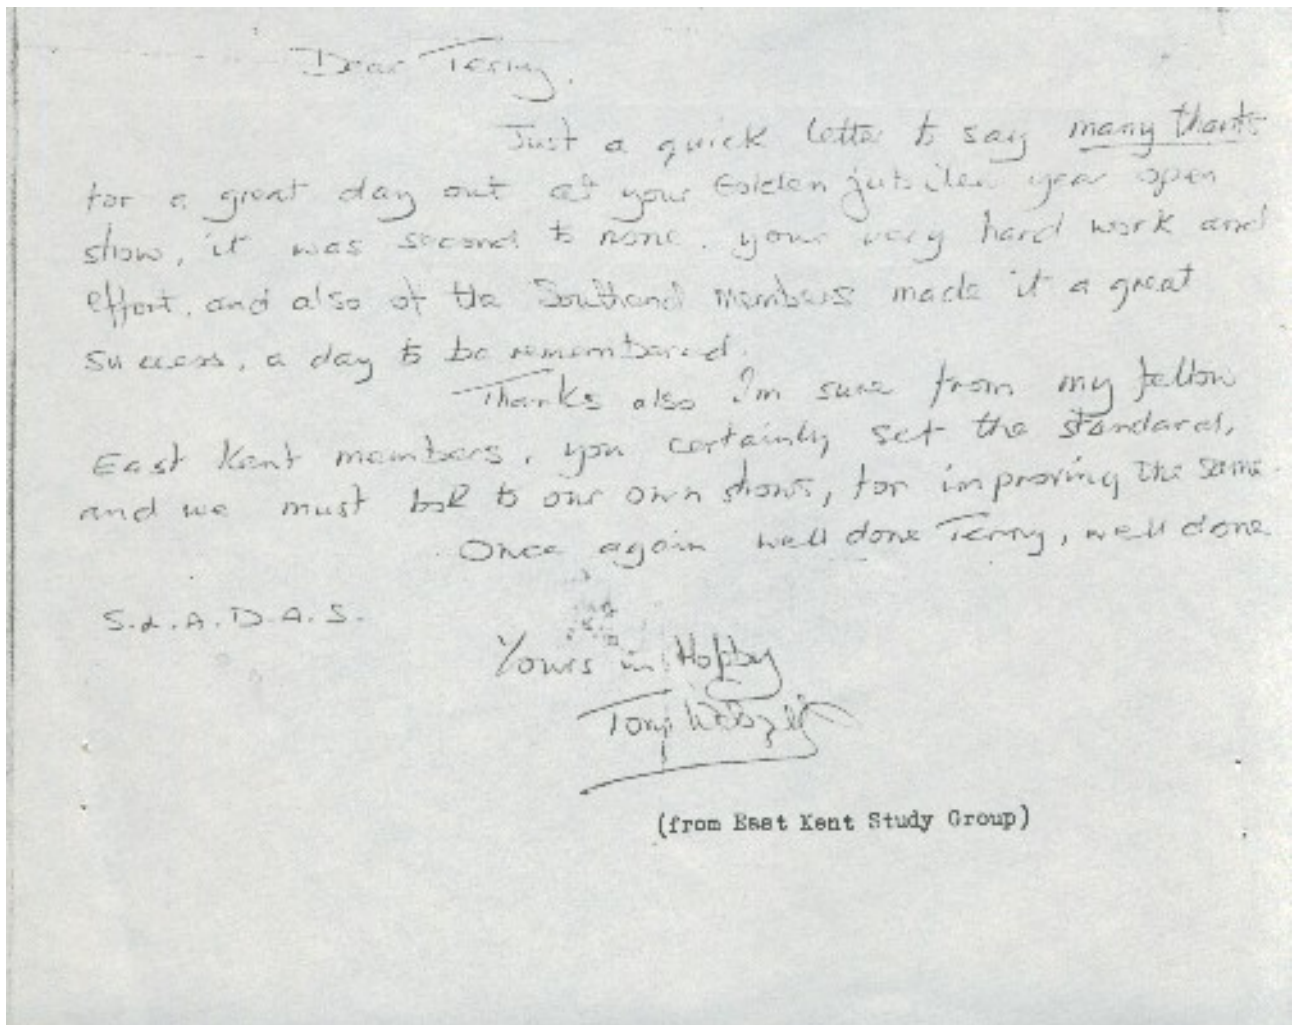 Dear Terry,
Just a quick letter to say many thanks
for a great day out at your Golden jubilee year open
show, it was second to none. your very hard work and
effort, and also of the Southend members made it a great
success, a day to be remembered.
Thanks also I'm sure from my fellow
East Kent members, you certainly set the standard,
and we must look to our own shows, for improving the same.
Once again well done Terry, well done
S.&.A.D.A.S.
Yours in Hobby
Tony
(from East Kent Study Group)